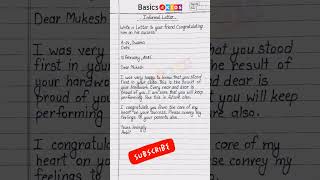 Basics 4 KIDS
Informal Letter
Write a Letter to your friend Congratulating
him on his success.
Delhi
Dear Mukesh
I was very happy to know that you stood
first in your class. This is the result of
your hardwork. Every near and dear is
proud of you. I am sure that you will keep
performing like this in future also.
I congratulate you from the core of my
heart on your success. Please convey my
feelings to your parents also.
Yours lovingly
SUBSCRIBE
Dear Mukesh
I was very
that you stood
first in
the result of
your hardw
and dear is
proud of y
you will keep
performing
I congratul
core of my
heart on
convey my
feelings